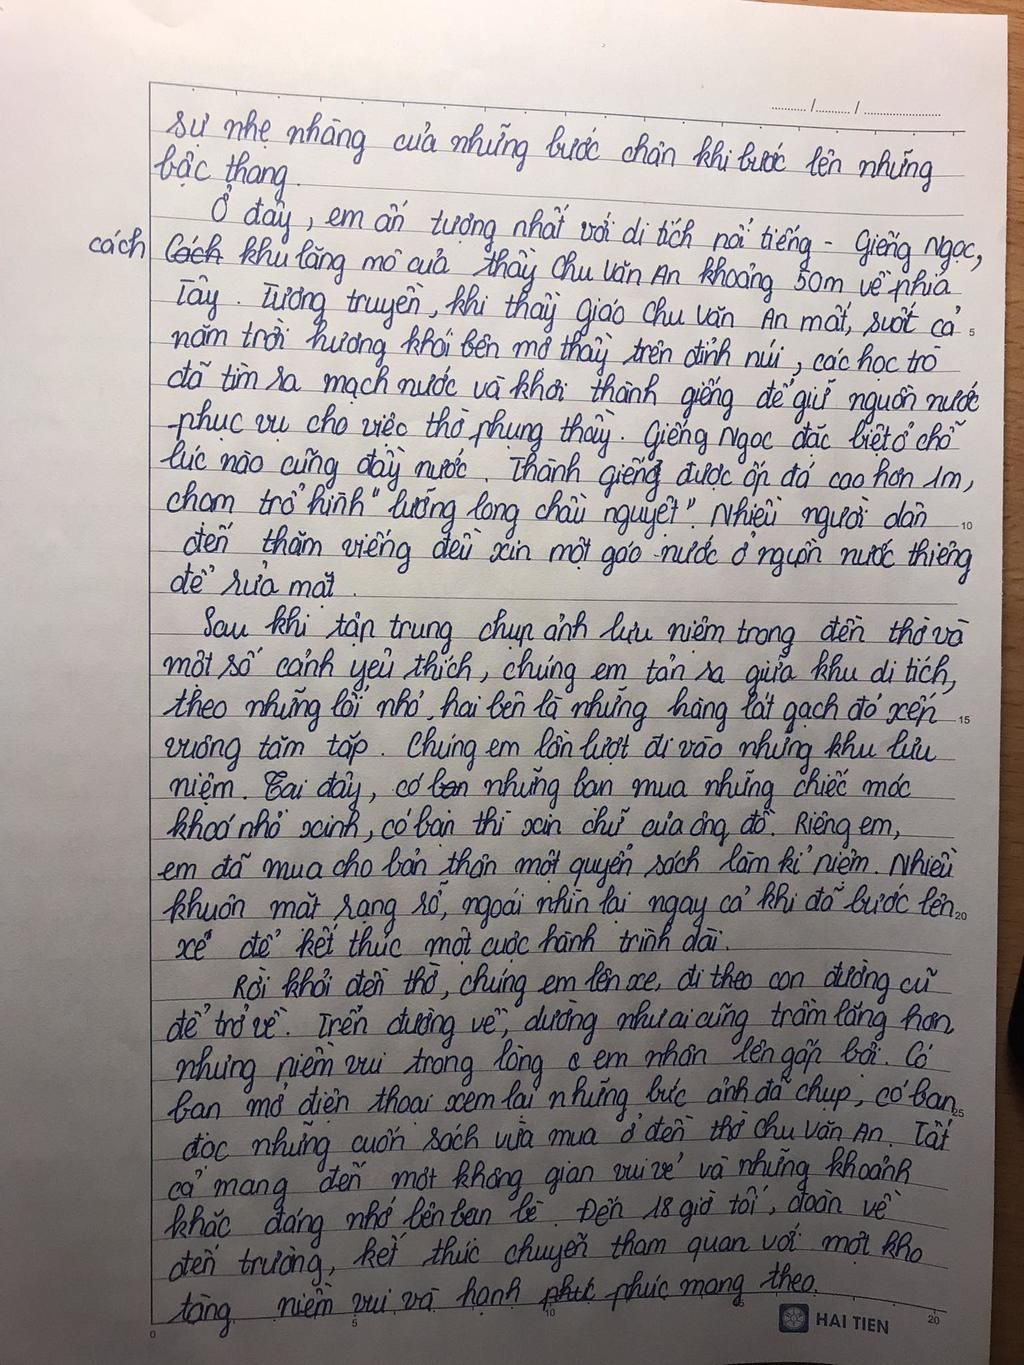 ............/............/........................
sự nhẹ nhàng của những bước chân khi bước lên những
bậc thang.
Ở đây, em ấn tượng nhất với di tích nổi tiếng - Giếng Ngọc,
cách Cách khu lăng mộ của thầy Chu Văn An khoảng 50m về phía
Tây. Tương truyền, khi thầy giáo Chu Văn An mất, suốt cả 5
năm trời hương khói bên mộ thầy trên đỉnh núi, các học trò
đã tìm ra mạch nước và khơi thành giếng để giữ nguồn nước
phục vụ cho việc thờ phụng thầy. Giếng Ngọc đặc biệt ở chỗ
lúc nào cũng đầy nước. Thành giếng được ốp đá cao hơn 1m,
chạm trổ hình "lưỡng long chầu nguyệt". Nhiều người dân 10
đến thăm viếng đều xin một gáo nước ở nguồn nước thiêng
để rửa mặt.
Sau khi tập trung chụp ảnh lưu niệm trong đền thờ và
một số cảnh yêu thích, chúng em tản ra giữa khu di tích,
theo những lối nhỏ, hai bên là những hàng lát gạch đỏ xếp 15
vuông tăm tắp. Chúng em lần lượt đi vào những khu lưu
niệm. Tại đây, có bạn những bạn mua những chiếc móc
khoá nhỏ xinh, có bạn thì xin chữ của ông đồ. Riêng em,
em đã mua cho bản thân một quyển sách làm kỉ niệm. Nhiều
khuôn mặt rạng rỡ, ngoái nhìn lại ngay cả khi đã bước lên 20
xe để kết thúc một cuộc hành trình dài.
Rời khỏi đền thờ, chúng em lên xe, đi theo con đường cũ
để trở về. Trên đường về, dường như ai cũng trầm lắng hơn,
nhưng niềm vui trong lòng e em nhân lên gấp bội. Có
bạn mở điện thoại xem lại những bức ảnh đã chụp, có bạn 25
đọc những cuốn sách vừa mua ở đền thờ Chu Văn An. Tất
cả mang đến một không gian vui vẻ và những khoảnh
khắc đáng nhớ bên bạn bè. Đến 18 giờ tối, đoàn về
đến trường, kết thúc chuyến tham quan với một kho
tàng niềm vui và hạnh phúc phúc mang theo.
0 5 10 15 20
HAI TIEN